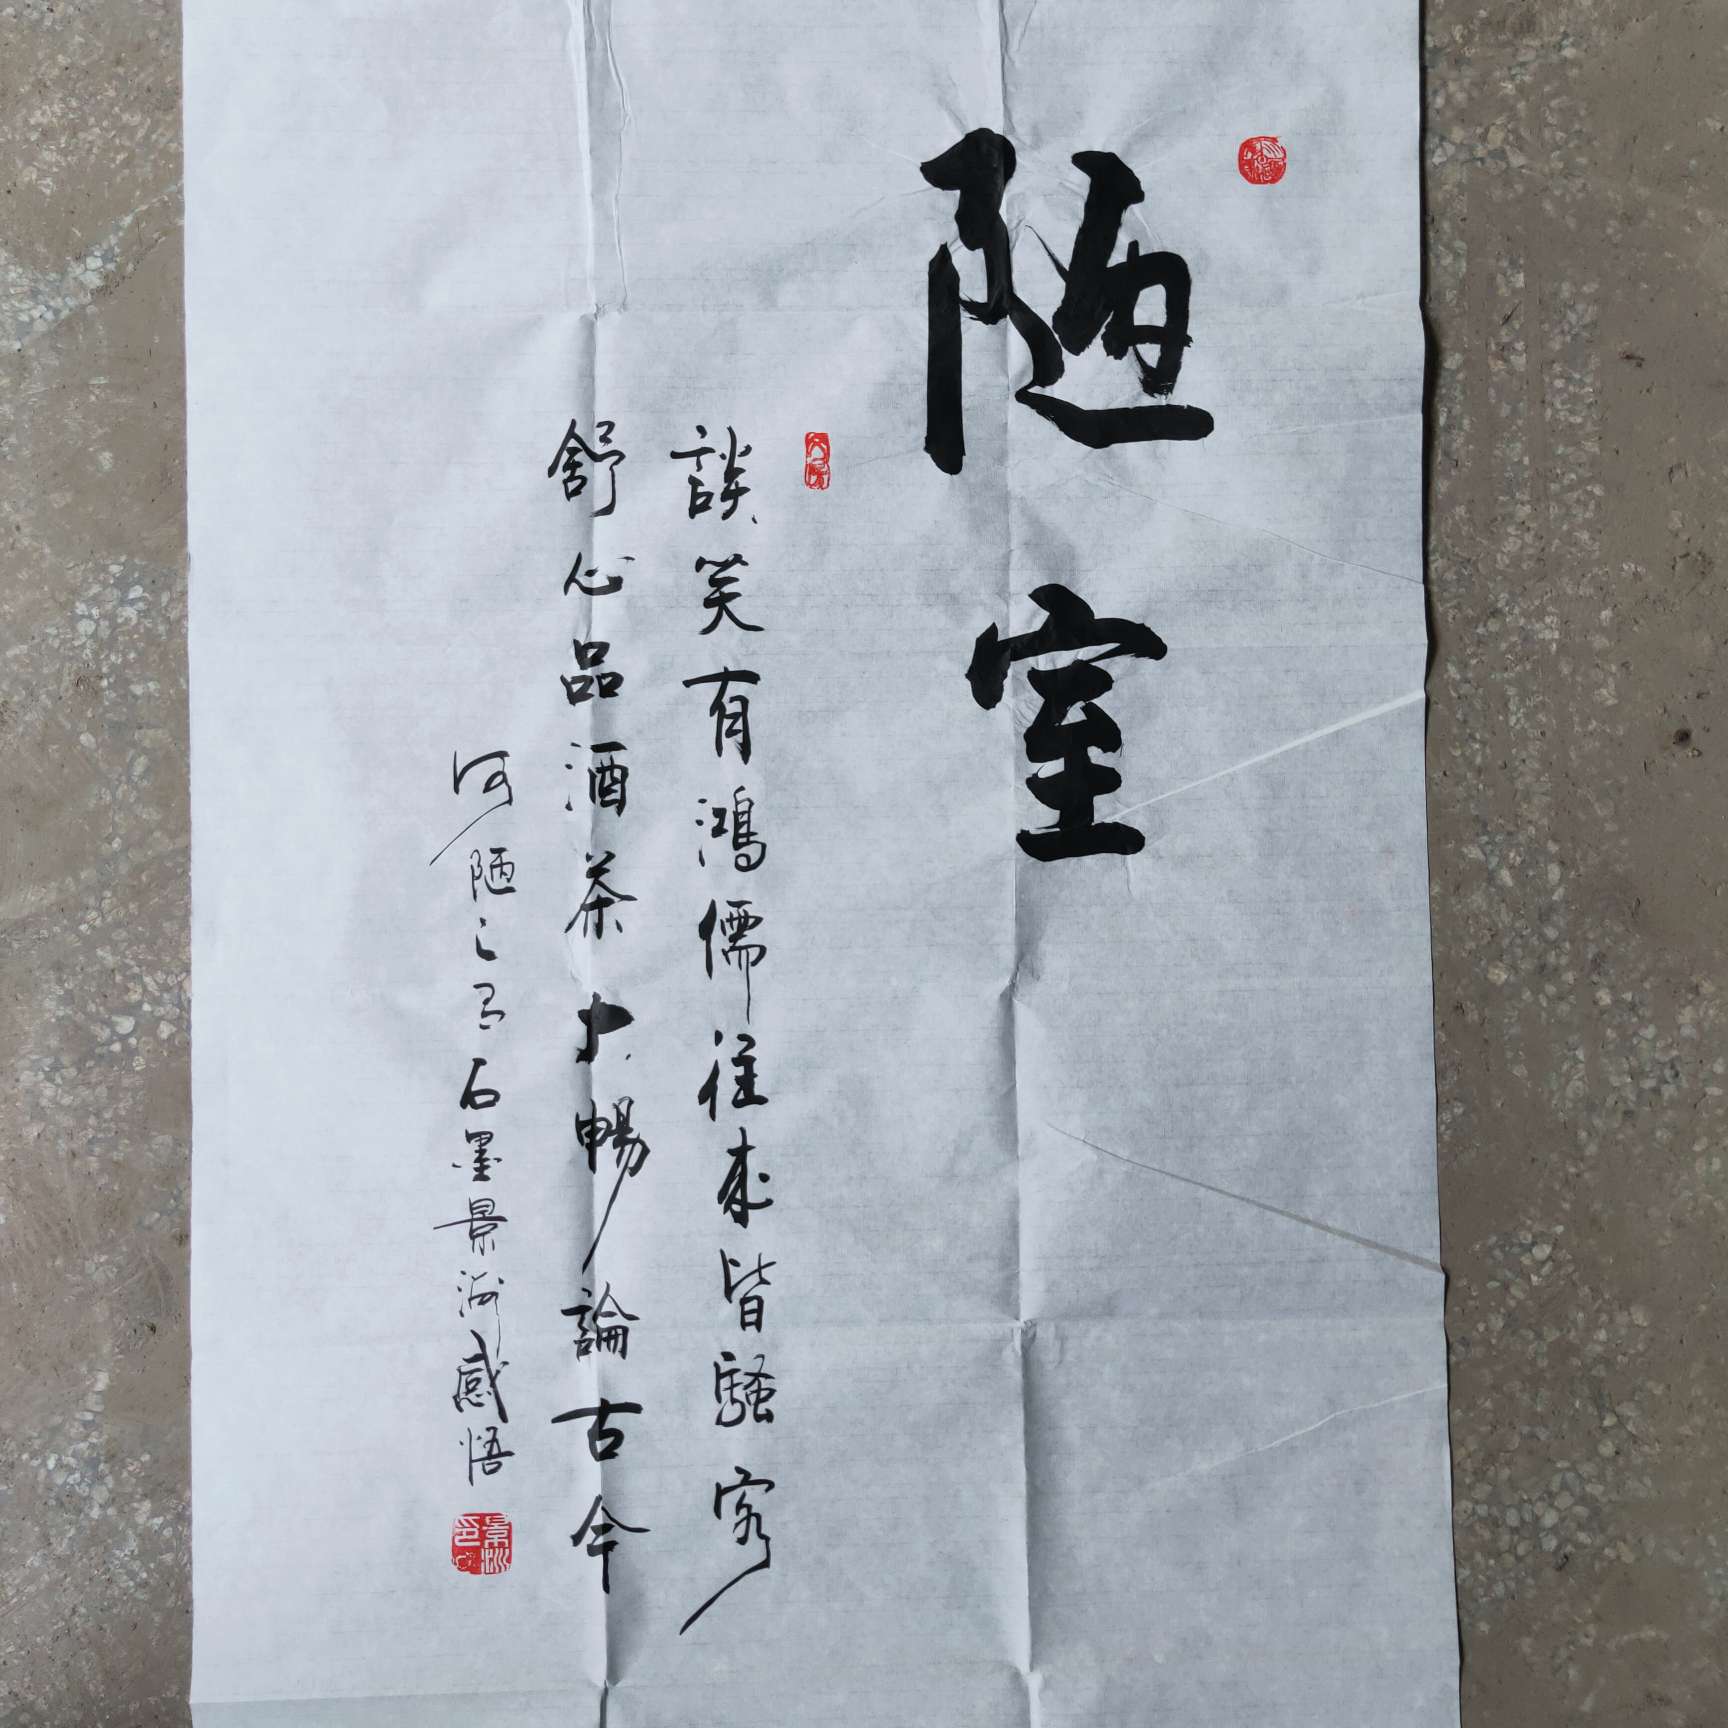 陋室
談笑有鴻儒往來皆騷客
舒心品酒茶大暢論古今
何陋之有石墨景洲感悟